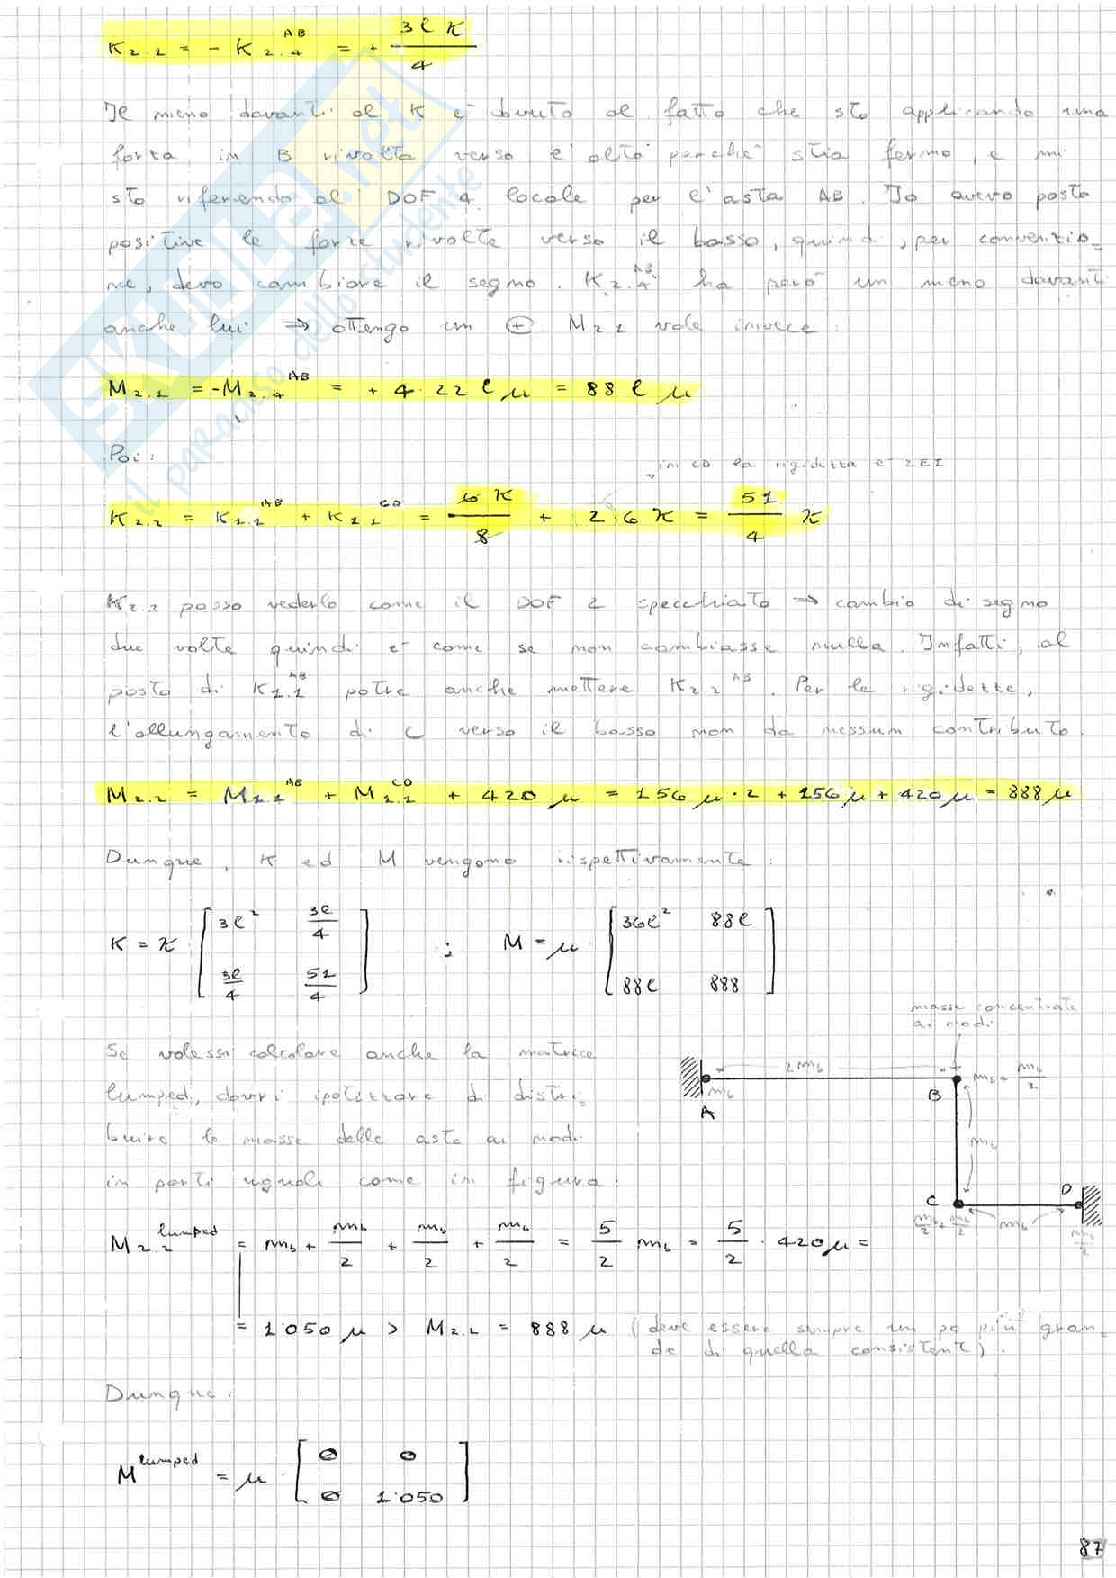 K₂.₂ = - K₂.₄ᴬᴮ = + 3ℓK/4
Il meno davanti al K è dovuto al fatto che sto applicando una
forza in B rivolta verso l'alto perché stia fermo, e mi
sto riferendo al DOF 4 locale per l'asta AB. Io avevo posto
positive le forze rivolte verso il basso, quindi, per convenzio-
ne, devo cambiare il segno. K₂.₄ᴬᴮ ha però un meno davanti
anche lui ⇒ ottengo un ⊕ M₂.₂ vale invece
M₂.₂ = -M₂.₄ᴬᴮ = + 4·22ℓμ = 88ℓμ
Poi:
in CD la rigidezza è 2EI
K₂.₂ = K₁.₁ᴬᴮ + K₁.₁ᶜᴰ = 6K/8 + 2·6K = 51/4 K
K₂.₂ posso vederlo come il DOF 2 specchiato → cambio di segno
due volte quindi è come se non cambiasse nulla. Infatti, al
posto di K₁.₁ᴬᴮ potrei anche mettere K₂.₂ᴬᴮ. Per le rigidezze,
l'allungamento di C verso il basso non dà nessun contributo.
M₂.₂ = M₁.₁ᴬᴮ + M₁.₁ᶜᴰ + 420μ = 156μ·2 + 156μ + 420μ = 888μ
Dunque, K ed M vengono rispettivamente:
K = K [3ℓ² 3ℓ/4 ; M = μ [36ℓ² 88ℓ
3ℓ/4 51/4] 88ℓ 888]
masse concentrate
ai nodi
Se volessi calcolare anche la matrice
lumped, dovrei ipotizzare di distri-
buire le masse delle aste ai nodi
in parti uguali come in figura:
2m_b
m_b
A
B
m_b + m_b/2
m_b
C
D
m_b/2 + m_b/2
m_b
m_b/2
M₂.₂ˡᵘᵐᵖᵉᵈ = m_b + m_b/2 + m_b/2 + m_b/2 = 5/2 m_b = 5/2 · 420μ =
= 1·050μ > M₂.₂ = 888μ (deve essere sempre un po più gran-
de di quella consistent).
Dunque:
Mˡᵘᵐᵖᵉᵈ = μ [0 0
0 1·050]
87
SKUOLA.net
il paradiso dello studente